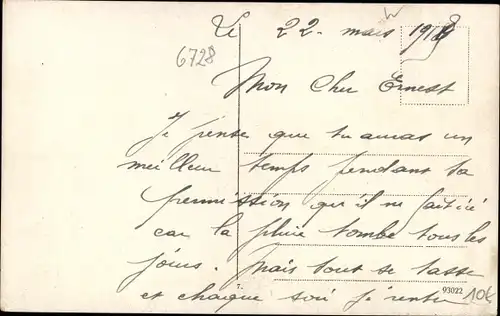 Le 22 mars 1918
6728
Mon Cher Ernest
Je pense que tu auras un
meilleur temps pendant ta
permission qu'il ne fait ici
car la pluie tombe tous les
jours. Mais tout se tasse
et chaque soir je rentre
93022
10€